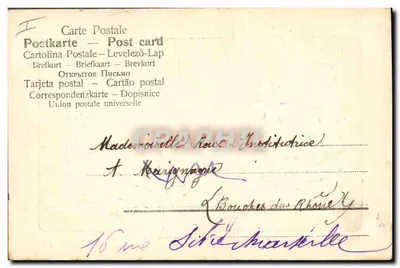 I
Carte Postale
Postkarte — Post card
Cartolina Postale — Levelező-Lap
Brefkort — Briefkaart — Brevkort
Открытое Письмо
Tarjeta postal — Cartão postal
Correspondenzkarte — Dopisnice
Union postale universelle
Mademoiselle Roux Institutrice
A Marignane
(Bouches du Rhône)
16 rue Marseille